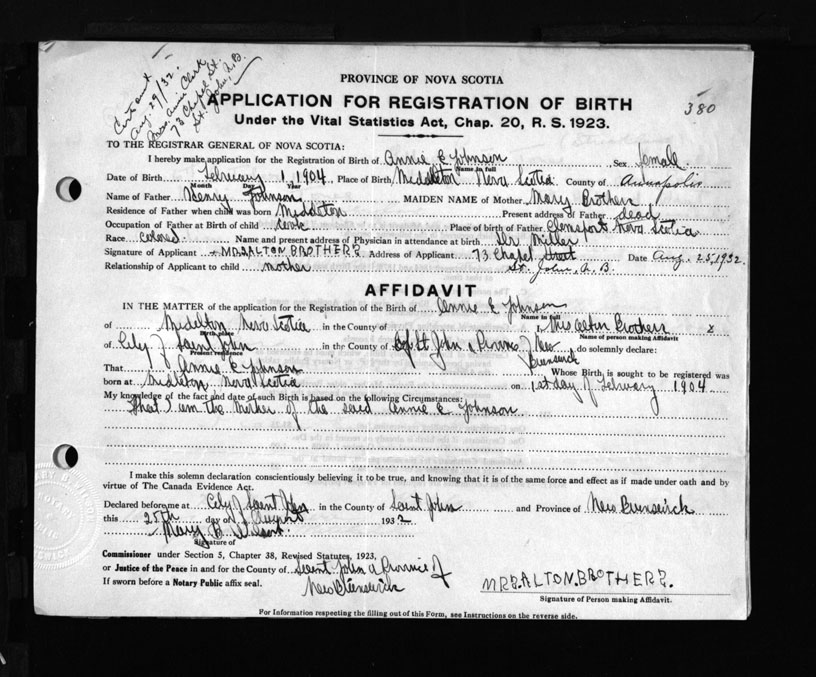 Cert sent
Aug. 29/32.
Mrs. Annie Clark
73 Chapel St.
St. John, N.B.
PROVINCE OF NOVA SCOTIA
APPLICATION FOR REGISTRATION OF BIRTH
380
Under the Vital Statistics Act, Chap. 20, R. S. 1923.
TO THE REGISTRAR GENERAL OF NOVA SCOTIA:
I hereby make application for the Registration of Birth of Annie E Johnson Sex female
Name in full
Date of Birth February 1 1904 Place of Birth Middleton Nova Scotia County of Annapolis
Month Day Year
Name of Father Henry Johnson MAIDEN NAME of Mother Mary Brothers
Residence of Father when child was born Middleton Present address of Father dead
Occupation of Father at Birth of child cook Place of birth of Father Clemsport Nova Scotia
Race colored Name and present address of Physician in attendance at birth Dr Miller
Signature of Applicant MRS ALTON BROTHERS Address of Applicant 73 Chapel Street Date Aug. 25, 1932
Relationship of Applicant to child mother St. John, N.B.
AFFIDAVIT
IN THE MATTER of the application for the Registration of the Birth of Annie E Johnson
Name in full
of Middelton Nova Scotia in the County of I, Mrs Alton Brothers
Birth place Name of person making Affidavit
of City of Saint John in the County of St John & Province of New Brunswick do solemnly declare:
Present residence
That Annie E Johnson Whose Birth is sought to be registered was
born at Midleton Nova Scotia on 1st day of February 1904
My knowledge of the fact and date of such Birth is based on the following Circumstances:
That I am the Mother of the said Annie E Johnson
I make this solemn declaration conscientiously believing it to be true, and knowing that it is of the same force and effect as if made under oath and by
virtue of The Canada Evidence Act.
Declared before me at City of Saint John in the County of Saint John and Province of New Brunswick
this 25th day of August 1932
Mary B Wilson
Signature of
Commissioner under Section 5, Chapter 38, Revised Statutes, 1923,
or Justice of the Peace in and for the County of Saint John & Province of
If sworn before a Notary Public affix seal. New Brunswick
MRS. ALTON. BROTHERS.
Signature of Person making Affidavit.
For Information respecting the filling out of this Form, see Instructions on the reverse side.